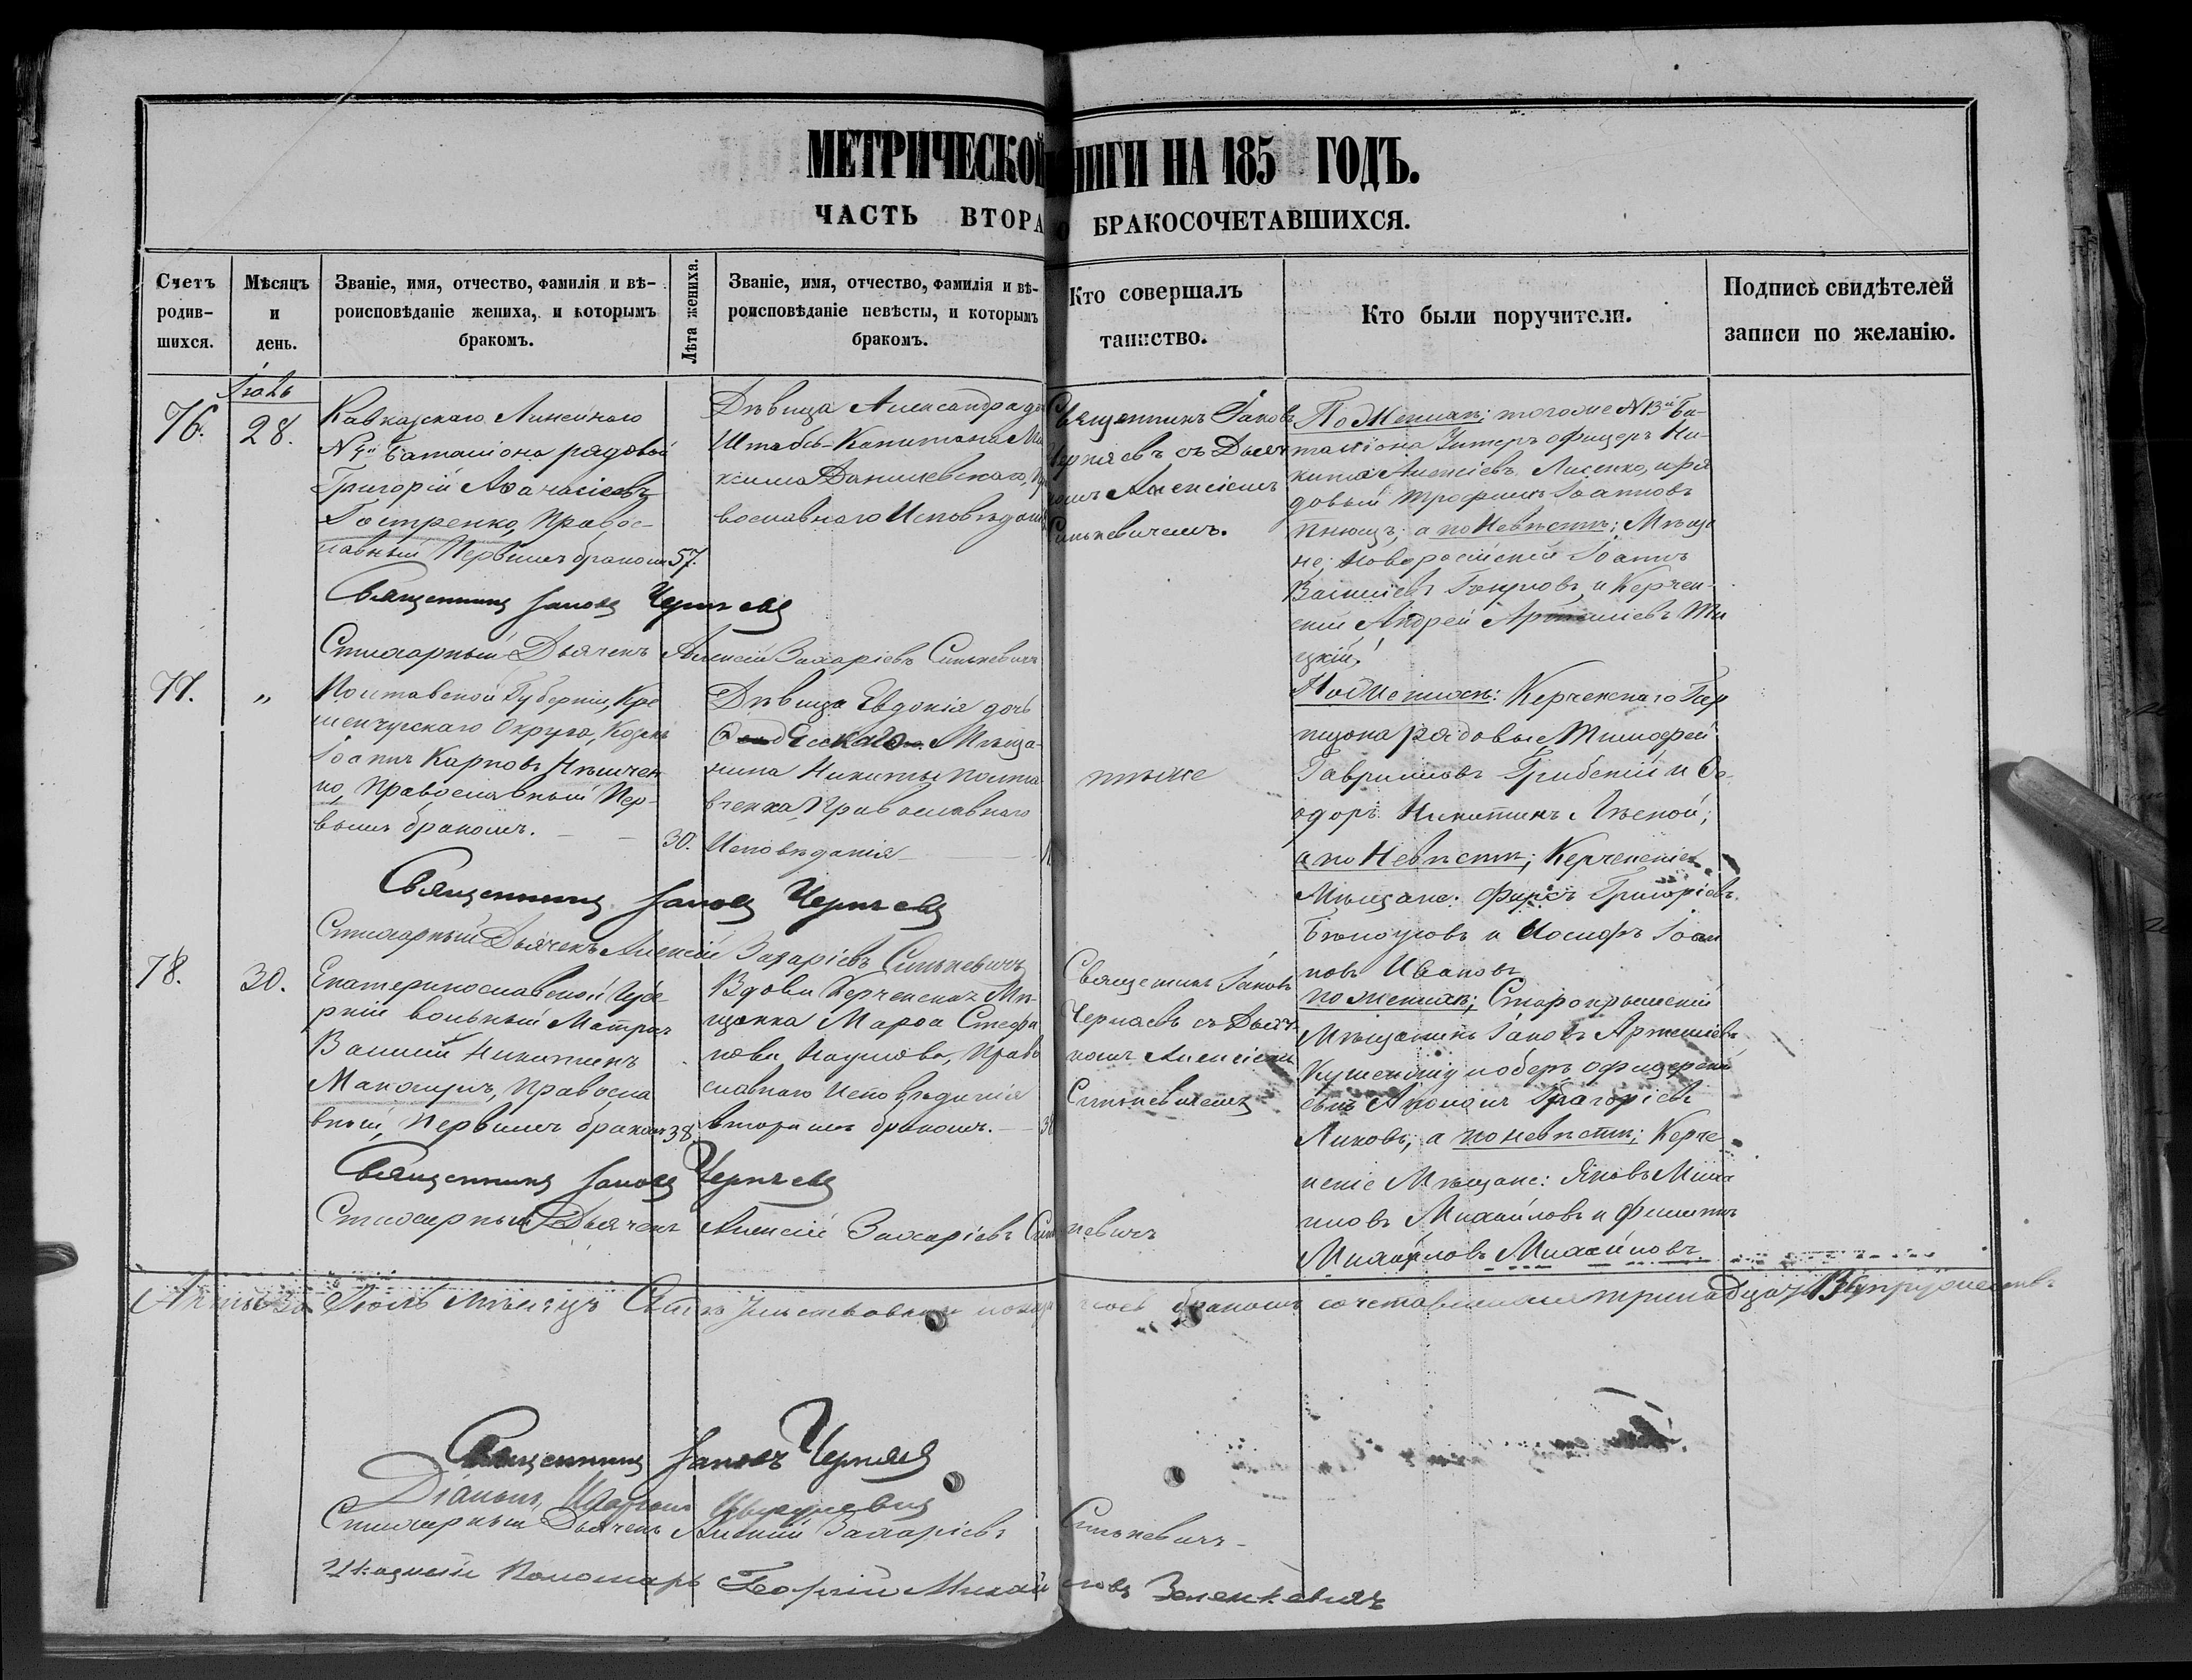 МЕТРИЧЕСКОЙ КНИГИ НА 185 ГОДЪ.
ЧАСТЬ ВТОРА О БРАКОСОЧЕТАВШИХСЯ.
Счетъ родив- шихся.
Мѣсяцъ и день.
Званіе, имя, отчество, фамилія и вѣ-
роисповѣданіе жениха, и которымъ
бракомъ.
Лѣта жениха.
Званіе, имя, отчество, фамилія и вѣ-
роисповѣданіе невѣсты, и которымъ
бракомъ.
Кто совершалъ
таинство.
Кто были поручители.
Подпись свидѣтелей
записи по желанію.
Іюль
76.
28.
Кавказскаго Линейнаго
баталіона рядовый
Григорій Аѳанасіевъ
Гостренко, Правос-
лавный Первымъ бракомъ
57.
Дѣвица Александра до
Штабсъ-Капитана Ма
ксима Данилевскаго, Пр
вославнаго Исповѣдан
Священникъ Іаковъ
Черняевъ съ Дьяч
комъ Алексіемъ
Синькевичемъ.
По Женихѣ; тогоже Ба-
таліона Унтеръ офицеръ Ни-
кита Алексіевъ Лисенко, и ря
довый Трофимъ Іоанновъ
а по Невѣстѣ; Мѣща
не; Новоросійскій Іоаннъ
Василіевъ и Керчен-
скій Андрей
цкій.
Священникъ Іаковъ Черняевъ
Стихарный Дьячекъ Алексій Захаріевъ Синькевичъ
77.
"
Полтавской Губерніи, Кре
менчугскаго Округа, Козакъ
Іоаннъ Карповъ
ко, Православный Пер-
вымъ бракомъ.
30.
Дѣвица Евдокія дочь
Одесскаго Мѣща-
нина Никиты Полта
вченка, Православнаго
Исповѣданія
тѣже
По Женихѣ: Керченскаго Гар
низона рядовые Тимофей
Гавриловъ Грибскій и Ѳе
одоръ Никитинъ Лѣсной;
а по Невѣстѣ; Керченскіе
Мѣщане: Фирсъ Григоріевъ
Бѣлоусовъ и Иосифъ Іоан
новъ Ивановъ
Священникъ Іаковъ Черняевъ
Стихарный Дьячекъ Алексій Захаріевъ Синькевичъ
78.
30.
Екатеринославской Губе-
рніи вольный Матрозъ
Василій Никитинъ
Правосла
вный, Первымъ бракомъ
38
Вдова Керченская Мѣ-
щанка Марѳа Стефа
нова Наумова, Право
славнаго Исповѣданія
вторымъ бракомъ.
Священникъ Іаковъ
Черняевъ съ Дьяч
комъ Алексіемъ
Синькевичемъ
по женихѣ; Старокрымскій
Мѣщанинъ Іаковъ Артемiевъ
оберъ офицерскій
сынъ Григоріевъ
Лиховъ; а по невѣстѣ; Керче
нскіе Мѣщане: Яковъ Миха
иловъ Михайловъ и Филиппъ
Михайловъ Михайловъ
Священникъ Іаковъ Черняевъ
Стихарный Дьячекъ Алексій Захаріевъ Синькевичъ
Іюль мѣсяцъ бракомъ сочетавшихся тринадцать супружествъ.
Священникъ Іаковъ Черняевъ
Діаконъ
Стихарный Дьячекъ Алексій Захаріевъ Синькевичъ
Пономарь Георгій Михайловъ Зеленкевичъ